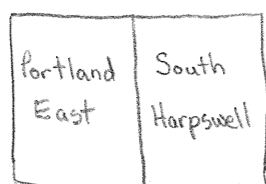 Portland
East
South
Harpswell